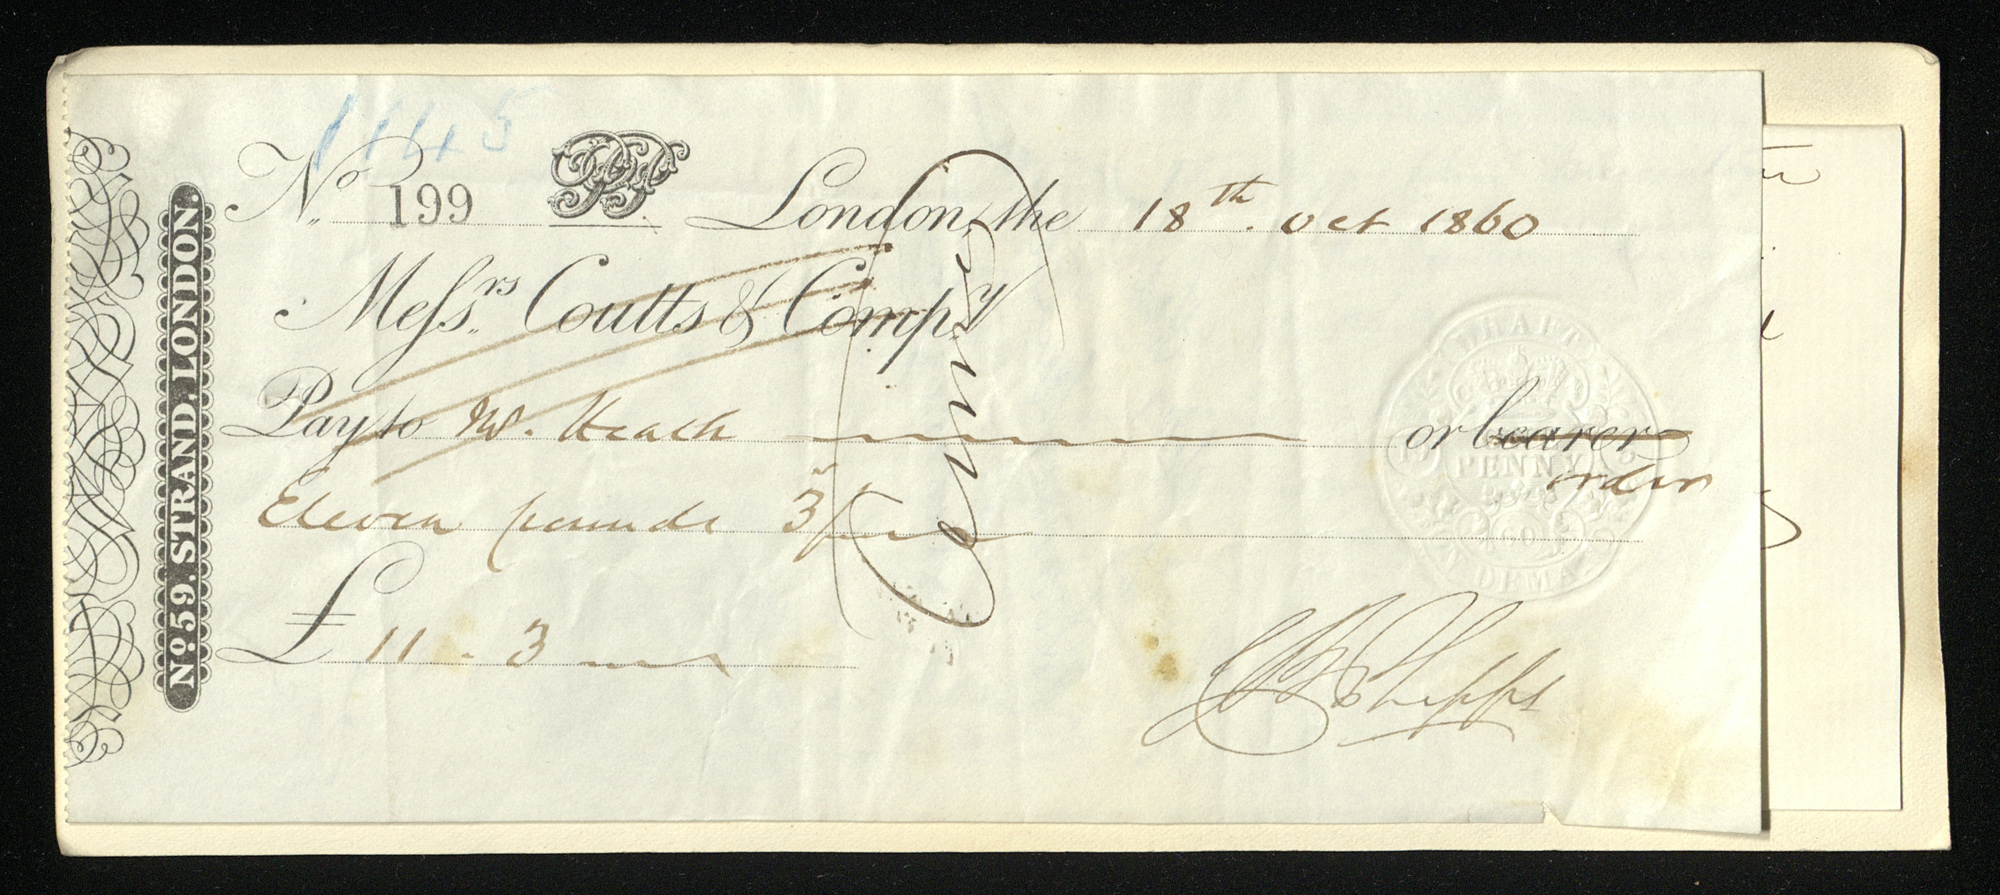 1145
No. 199 London, the 18th. Oct 1860
Messrs. Coutts & Compy.
Pay to W. Heath or bearer
order
Eleven pounds 3/
£ 11 . 3
C B Phipps
No. 59. STRAND. LONDON.
DRAFT
PENNY
ON DEMAND